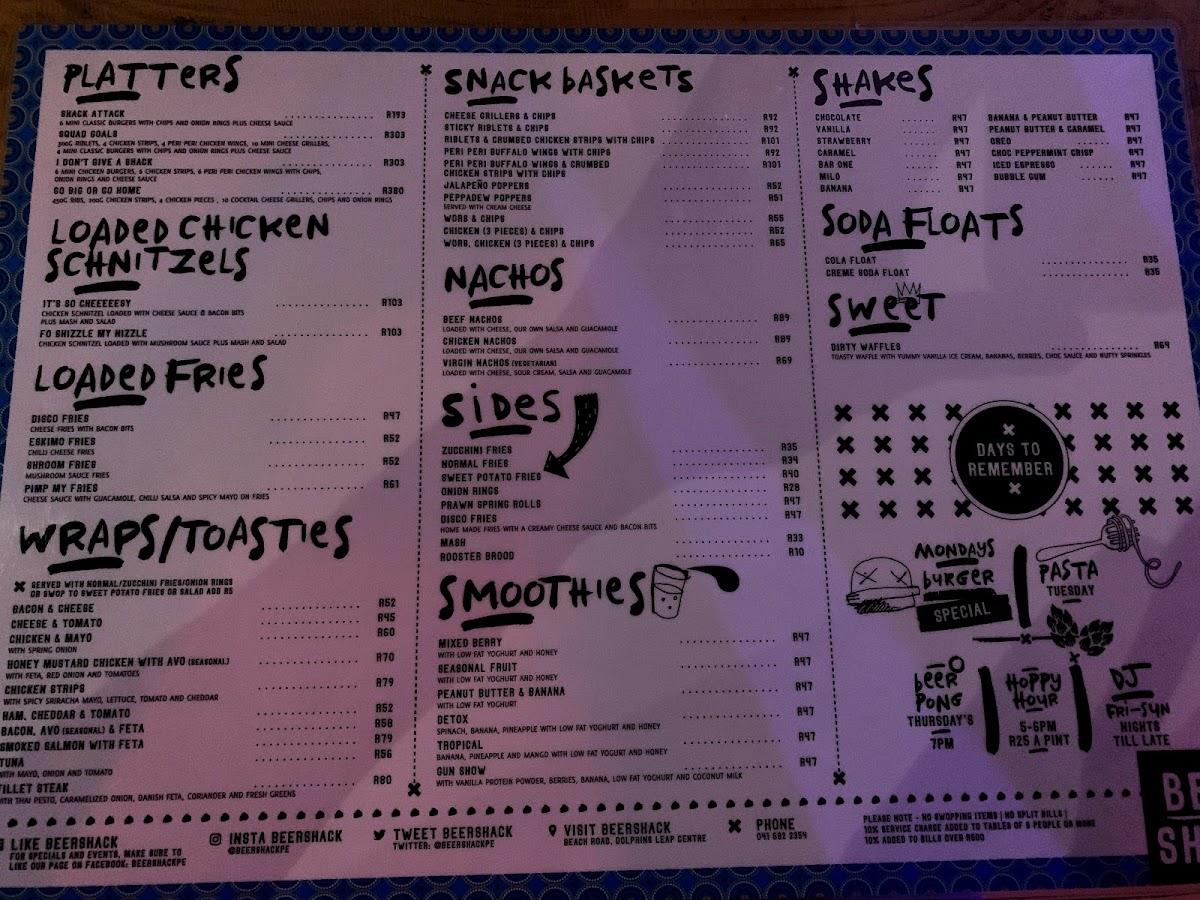 PLATTERS
SHACK ATTACK R193
6 MINI CLASSIC BURGERS WITH CHIPS AND ONION RINGS PLUS CHEESE SAUCE
SQUAD GOALS R303
300G RIBLETS, 4 CHICKEN STRIPS, 4 PERI PERI CHICKEN WINGS, 10 MINI CHEESE GRILLERS,
4 MINI CLASSIC BURGERS WITH CHIPS AND ONION RINGS PLUS CHEESE SAUCE
I DON'T GIVE A SHACK R303
6 MINI CHICKEN BURGERS, 6 CHICKEN STRIPS, 6 PERI PERI CHICKEN WINGS WITH CHIPS,
ONION RINGS AND CHEESE SAUCE
GO BIG OR GO HOME R380
450G RIBS, 200G CHICKEN STRIPS, 4 CHICKEN PIECES , 10 COCKTAIL CHEESE GRILLERS, CHIPS AND ONION RINGS
LOADED CHICKEN
SCHNITZELS
IT'S SO CHEEEEESY R103
CHICKEN SCHNITZEL LOADED WITH CHEESE SAUCE & BACON BITS
PLUS MASH AND SALAD
FO SHIZZLE MY NIZZLE R103
CHICKEN SCHNITZEL LOADED WITH MUSHROOM SAUCE PLUS MASH AND SALAD
LOADED FRIES
DISCO FRIES R47
CHEESE FRIES WITH BACON BITS
ESKIMO FRIES R52
CHILLI CHEESE FRIES
SHROOM FRIES R52
MUSHROOM SAUCE FRIES
PIMP MY FRIES R61
CHEESE SAUCE WITH GUACAMOLE, CHILLI SALSA AND SPICY MAYO ON FRIES
WRAPS/TOASTIES
SERVED WITH NORMAL/ZUCCHINI FRIES/ONION RINGS
OR SWOP TO SWEET POTATO FRIES OR SALAD ADD R5
BACON & CHEESE R52
CHEESE & TOMATO R45
CHICKEN & MAYO R60
WITH SPRING ONION
HONEY MUSTARD CHICKEN WITH AVO (SEASONAL) R70
WITH FETA, RED ONION AND TOMATOES
CHICKEN STRIPS R79
WITH SPICY SRIRACHA MAYO, LETTUCE, TOMATO AND CHEDDAR
HAM, CHEDDAR & TOMATO R52
BACON, AVO (SEASONAL) & FETA R58
SMOKED SALMON WITH FETA R79
TUNA R56
WITH MAYO, ONION AND TOMATO
FILLET STEAK R80
WITH THAI PESTO, CARAMELIZED ONION, DANISH FETA, CORIANDER AND FRESH GREENS
SNACK BASKETS
CHEESE GRILLERS & CHIPS R92
STICKY RIBLETS & CHIPS R92
RIBLETS & CRUMBED CHICKEN STRIPS WITH CHIPS R101
PERI PERI BUFFALO WINGS WITH CHIPS R92
PERI PERI BUFFALO WINGS & CRUMBED R101
CHICKEN STRIPS WITH CHIPS
JALAPEÑO POPPERS R52
PEPPADEW POPPERS R51
SERVED WITH CREAM CHEESE
WORS & CHIPS R55
CHICKEN (3 PIECES) & CHIPS R52
WORS, CHICKEN (3 PIECES) & CHIPS R65
NACHOS
BEEF NACHOS R89
LOADED WITH CHEESE, OUR OWN SALSA AND GUACAMOLE
CHICKEN NACHOS R89
LOADED WITH CHEESE, OUR OWN SALSA AND GUACAMOLE
VIRGIN NACHOS (VEGETARIAN) R69
LOADED WITH CHEESE, SOUR CREAM, SALSA AND GUACAMOLE
SIDES
ZUCCHINI FRIES R35
NORMAL FRIES R34
SWEET POTATO FRIES R40
ONION RINGS R28
PRAWN SPRING ROLLS R47
DISCO FRIES R47
HOME MADE FRIES WITH A CREAMY CHEESE SAUCE AND BACON BITS
MASH R33
ROOSTER BROOD R10
SMOOTHIES
MIXED BERRY R47
WITH LOW FAT YOGHURT AND HONEY
SEASONAL FRUIT R47
WITH LOW FAT YOGHURT AND HONEY
PEANUT BUTTER & BANANA R47
WITH LOW FAT YOGHURT
DETOX R47
SPINACH, BANANA, PINEAPPLE WITH LOW FAT YOGHURT AND HONEY
TROPICAL R47
BANANA, PINEAPPLE AND MANGO WITH LOW FAT YOGURT AND HONEY
GUN SHOW R47
WITH VANILLA PROTEIN POWDER, BERRIES, BANANA, LOW FAT YOGHURT AND COCONUT MILK
SHAKES
CHOCOLATE R47
VANILLA R47
STRAWBERRY R47
CARAMEL R47
BAR ONE R47
MILO R47
BANANA R47
BANANA & PEANUT BUTTER R47
PEANUT BUTTER & CARAMEL R47
OREO R47
CHOC PEPPERMINT CRISP R47
ICED ESPRESSO R47
BUBBLE GUM R47
SODA FLOATS
COLA FLOAT R35
CREME SODA FLOAT R35
SWEET
DIRTY WAFFLES R64
TOASTY WAFFLE WITH YUMMY VANILLA ICE CREAM, BANANAS, BERRIES, CHOC SAUCE AND NUTTY SPRINKLES
DAYS TO
REMEMBER
MONDAYS
BURGER
SPECIAL
PASTA
TUESDAY
BEER
PONG
THURSDAY'S
7PM
HOPPY
HOUR
5-6PM
R25 A PINT
DJ
FRI-SUN
NIGHTS
TILL LATE
LIKE BEERSHACK
FOR SPECIALS AND EVENTS, MAKE SURE TO
LIKE OUR PAGE ON FACEBOOK: BEERSHACKPE
INSTA BEERSHACK
@BEERSHACKPE
TWEET BEERSHACK
TWITTER: @BEERSHACKPE
VISIT BEERSHACK
BEACH ROAD, DOLPHINS LEAP CENTRE
PHONE
041 582 2354
PLEASE NOTE - NO SWOPPING ITEMS | NO SPLIT BILLS |
10% SERVICE CHARGE ADDED TO TABLES OF 6 PEOPLE OR MORE
10% ADDED TO BILLS OVER R600
BE
SH